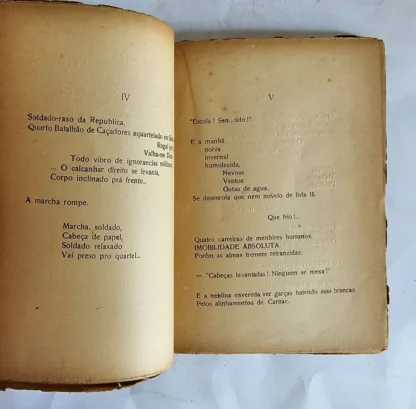 IV
Soldado-raso da Republica.
Quarto Batalhão de Caçadores aquartelado em
Rogai
Valha-me
Todo vibro de ignorancias militares
... O calcanhar direito se levanta,
Corpo inclinado prá frente...
A marcha rompe.
Marcha, soldado,
Cabeça de papel,
Soldado relaxado
Vai preso pro quartel...
V
"Escola! Sen...tido!"
E a manhã
noiva
invernal
humidecida,
Nevoas
Ventos
Gotas de agua.
Se desenrola que nem novelo de fofa lã.
Que frio!..
Quatro carreiras de menhires humanos.
IMOBILIDADE ABSOLUTA.
Porên as almas tremem retranzidas.
— "Cabeças levantadas! Ninguem se mexa!"
E a neblina envereda ver garças batendo suas brancas
Pelos alinhamentos de Carnac.